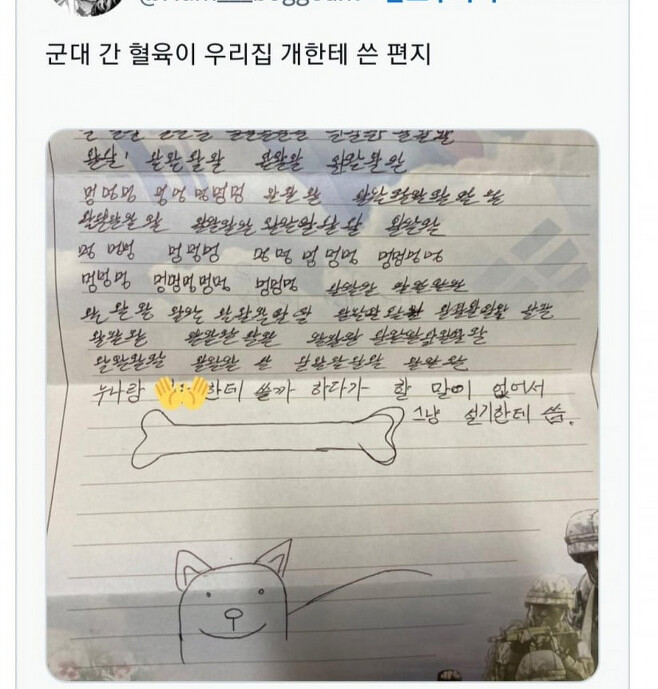 군대 간 혈육이 우리집 개한테 쓴 편지
왈왈! 왈왈왈왈 왈왈왈 왈왈왈왈
멍멍멍 멍멍 멍멍멍멍 왈왈왈 왈왈왈왈왈왈왈
왈왈왈왈왈 왈왈왈왈 왈왈왈왈왈왈 왈왈왈
멍 멍멍 멍멍멍 멍멍 멍 멍멍 멍멍멍멍
멍멍멍 멍멍멍멍멍 멍멍멍 왈왈왈 왈왈왈왈왈
왈 왈왈왈 왈왈 왈왈왈왈왈왈 왈왈왈왈왈 왈왈왈왈왈 왈왈
왈왈왈 왈왈왈왈왈 왈왈왈 왈왈왈왈왈왈왈
왈왈왈왈 왈왈왈 왈 왈왈왈왈왈 왈왈왈
누나랑 한테 쓸까 하다가 할 말이 없어서
그냥 설기한테 씀.